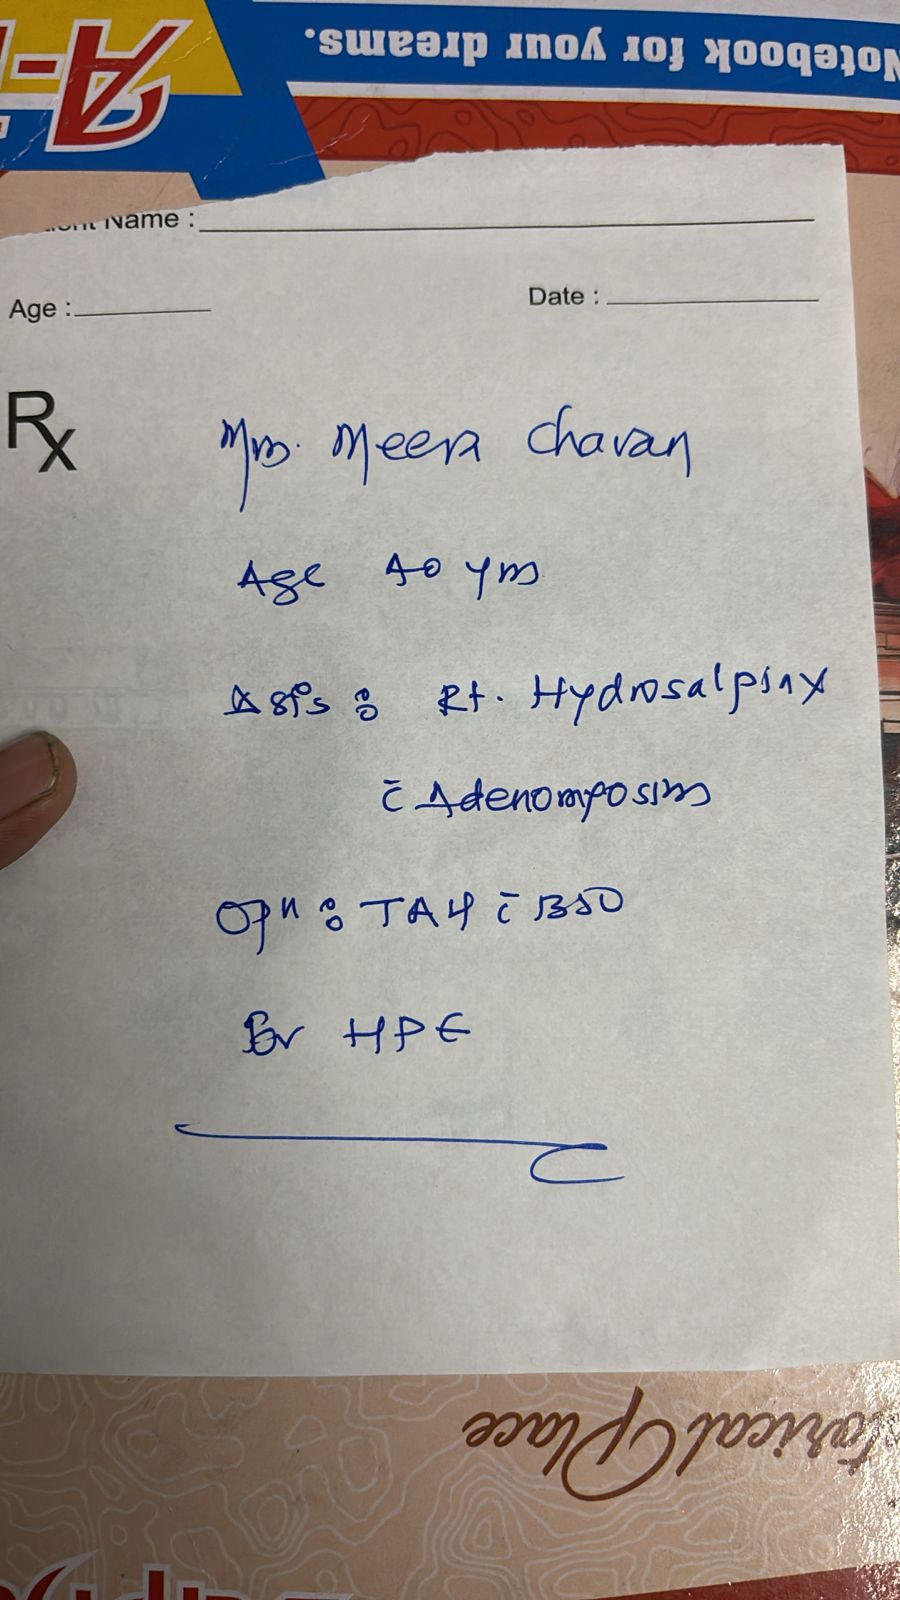 Notebook for your dreams.
A-
Name :
Age :
Date :
Rx
Mrs. Meera Chavan
Age 40 yrs
Δsis : Rt. Hydrosalpinx
c̄ Adenomyosis
Opn : TAH c̄ BSO
For HPE
Place